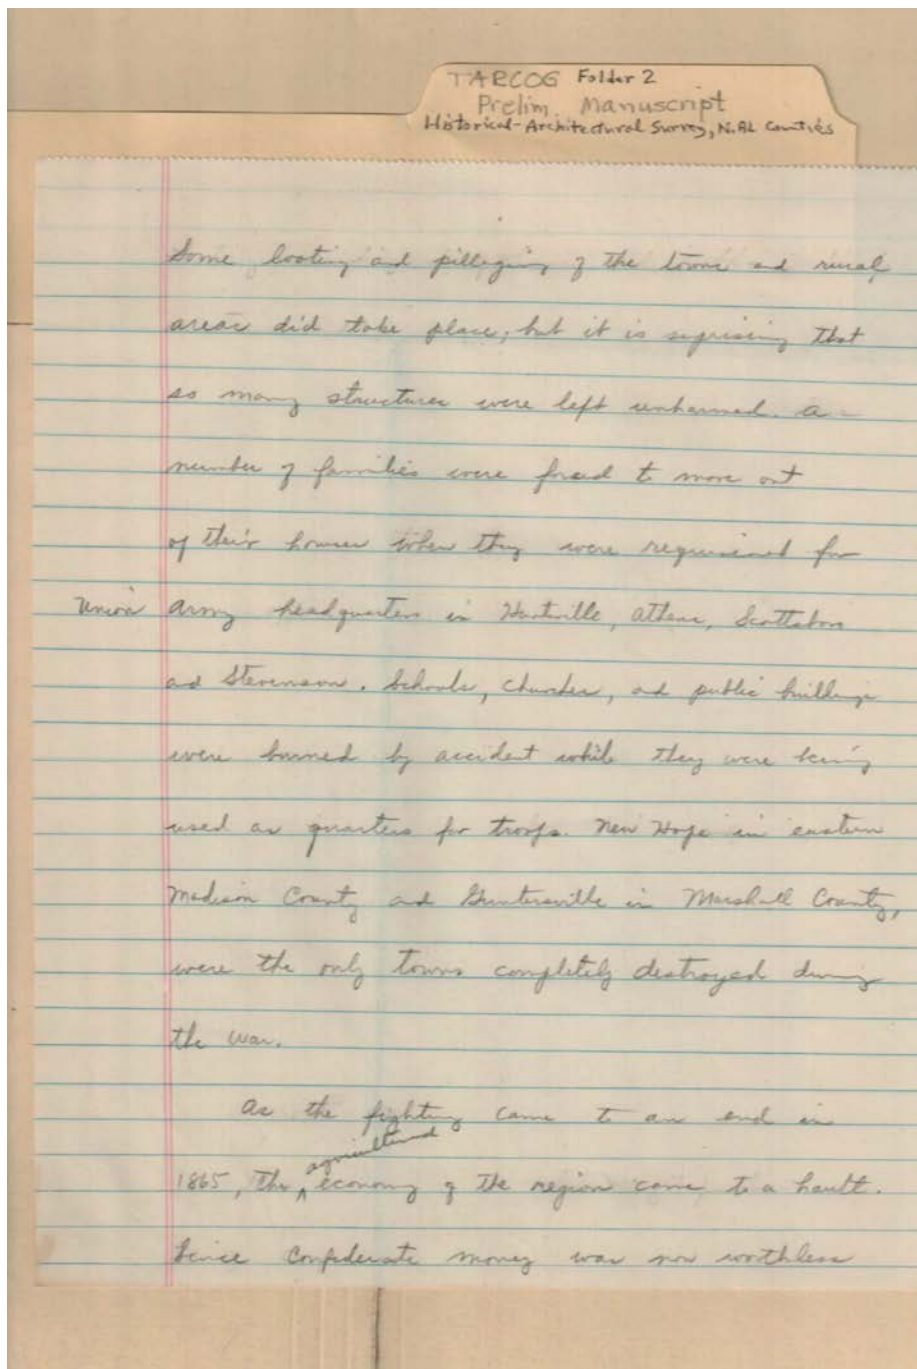 TARCOG Folder 2
Prelim. Manuscript
Historical-Architectural Survey, N. AL Counties
Some looting and pillaging of the towns and rural
areas did take place, but it is suprising that
so many structures were left unharmed. A
number of families were forced to move out
of their homes when they were requisioned for
Union Army headquarters in Huntsville, Athens, Scottsboro
and Stevenson. Schools, churches, and public buildings
were burned by accident while they were being
used as quarters for troops. New Hope in eastern
Madison County and Guntersville in Marshall County,
were the only towns completely destroyed during
the war.
As the fighting came to an end in
agricultural
1865, the ^ economy of the region came to a hault.
Since Confederate money was now worthless